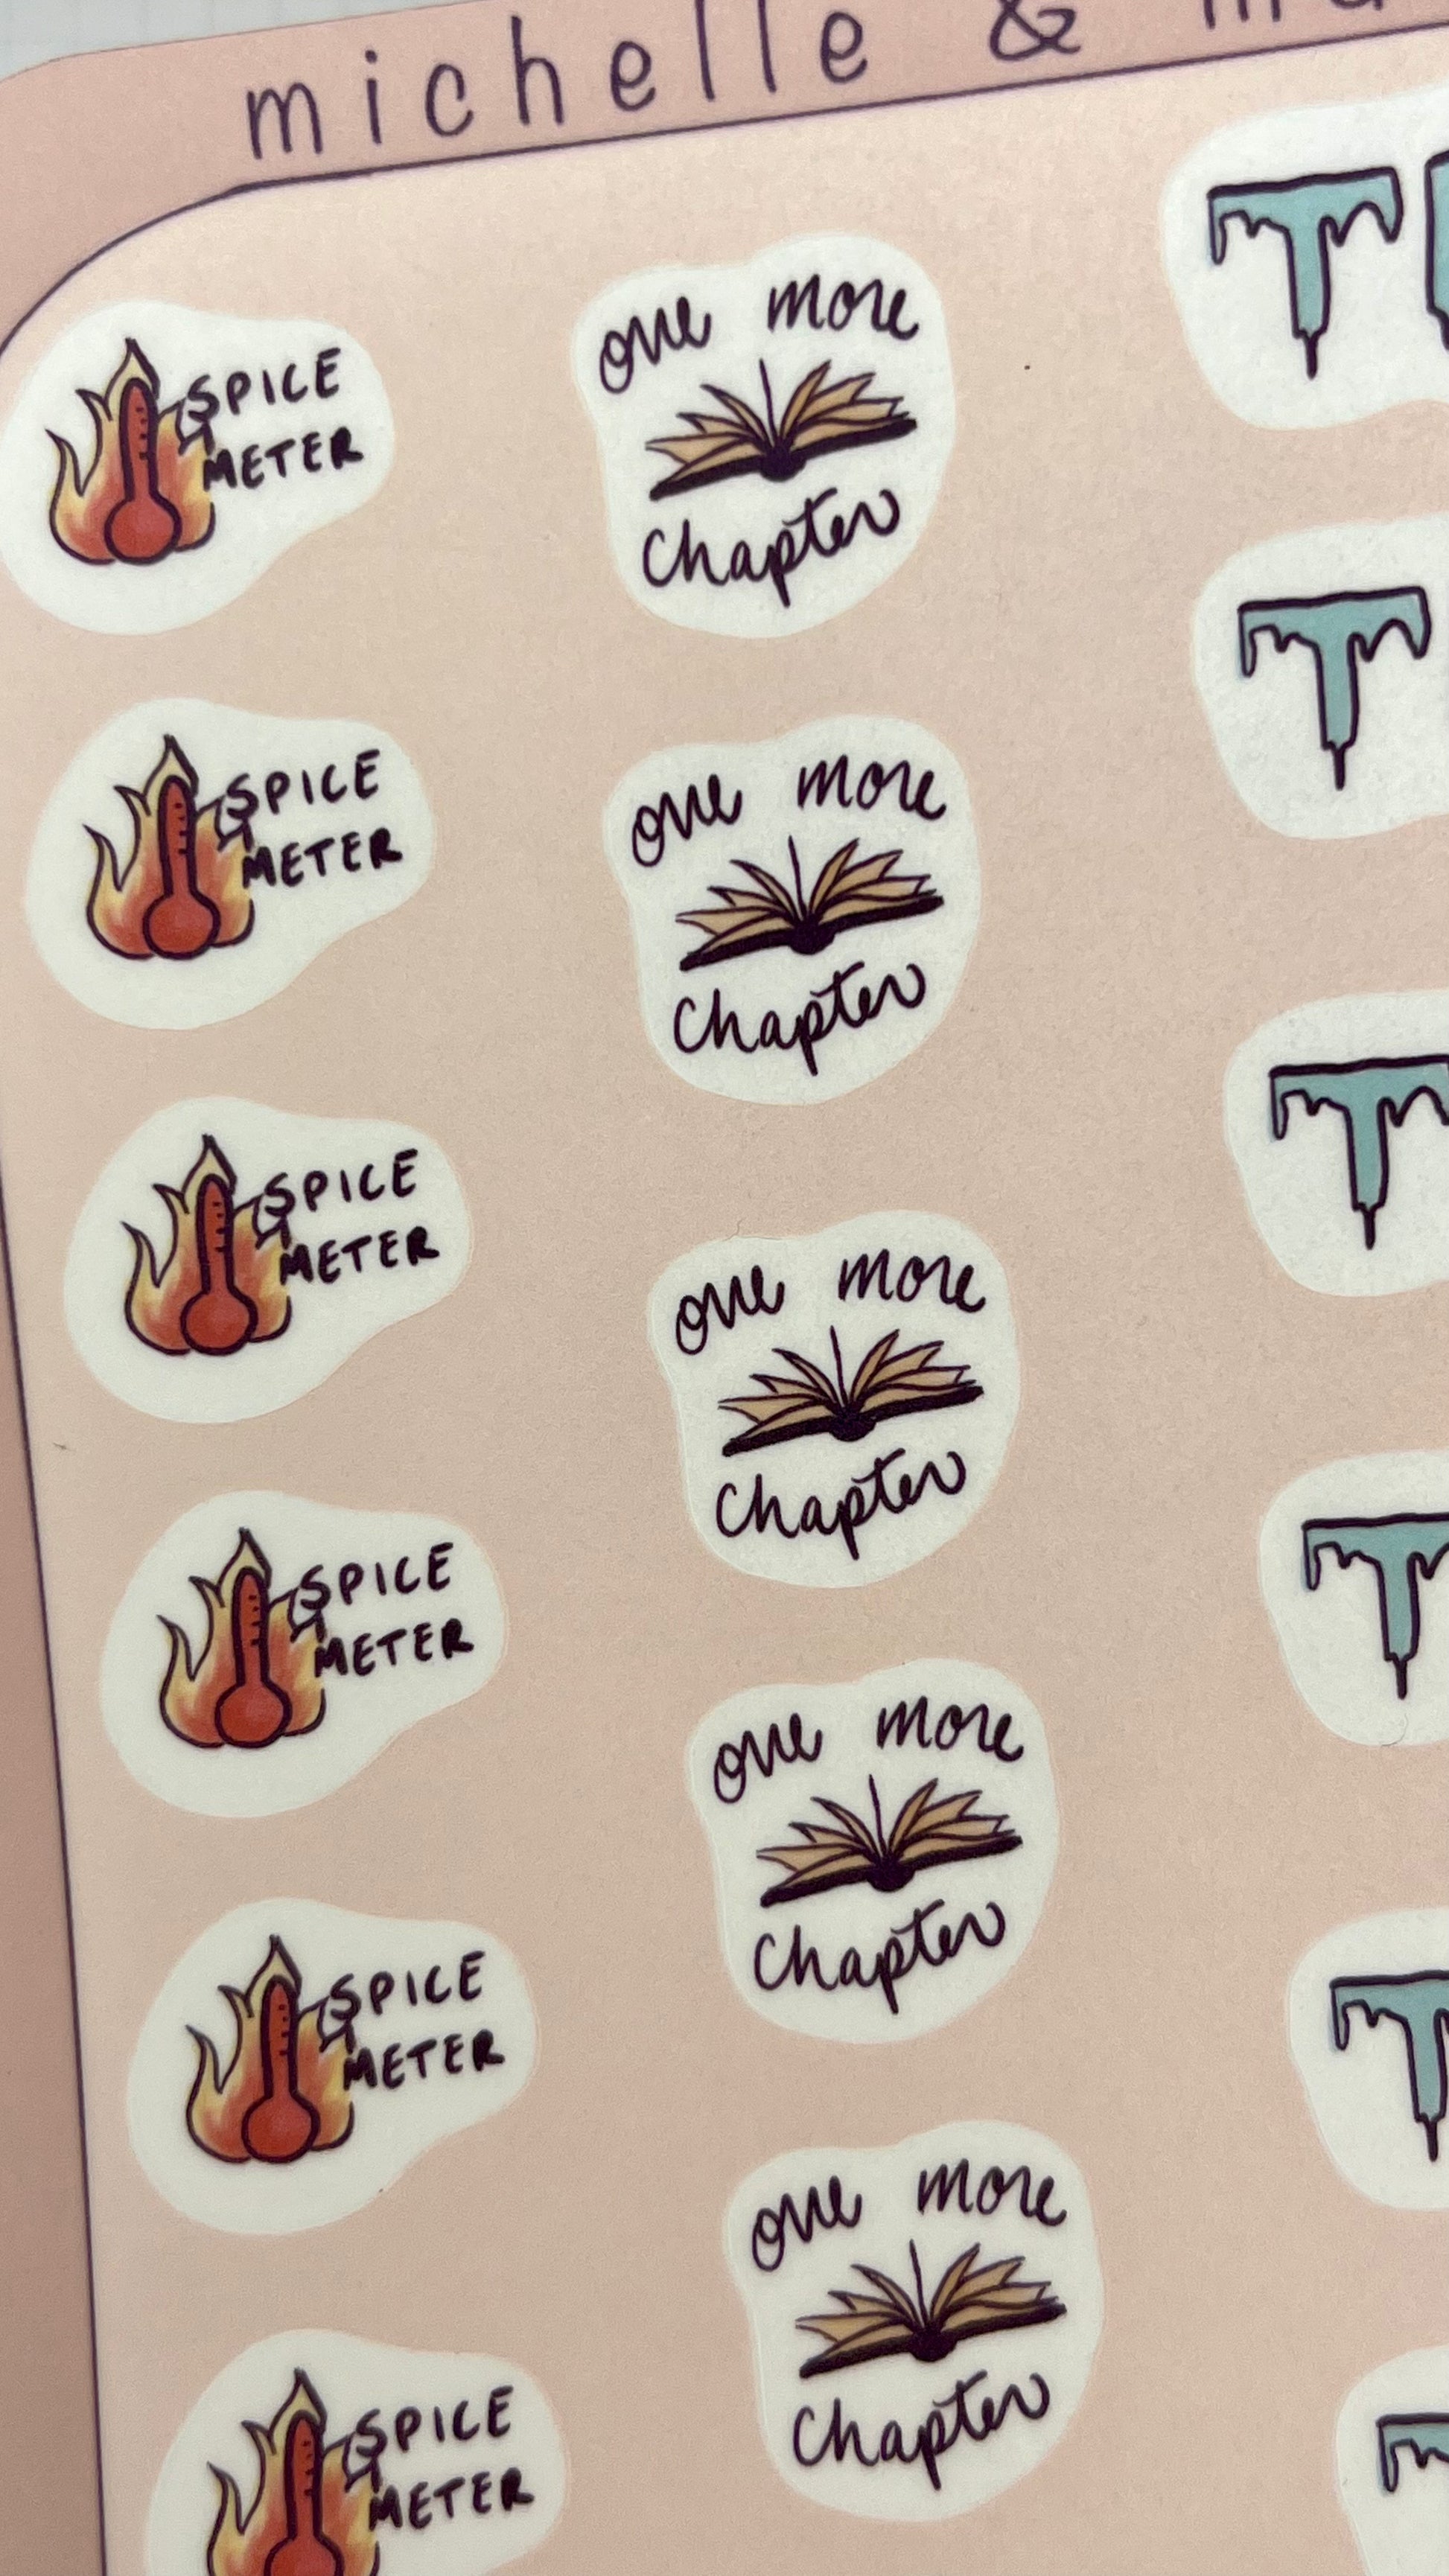 michelle &
SPICE
METER
one more
Chapter
T
SPICE
METER
one more
Chapter
T
SPICE
METER
one more
Chapter
T
SPICE
METER
one more
Chapter
T
SPICE
METER
one more
Chapter
T
SPICE
METER